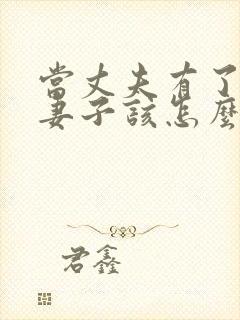 當丈夫有了
妻子該怎麼
君鑫